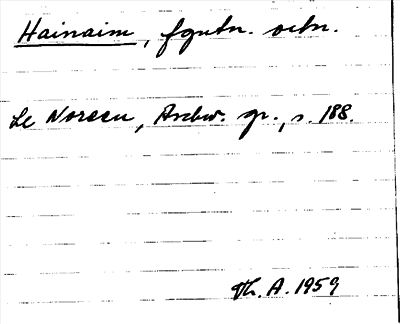 Hainaim, fgutn. octn.
Se Noreen, Aschw. gr., s. 188.
Th. A. 1959